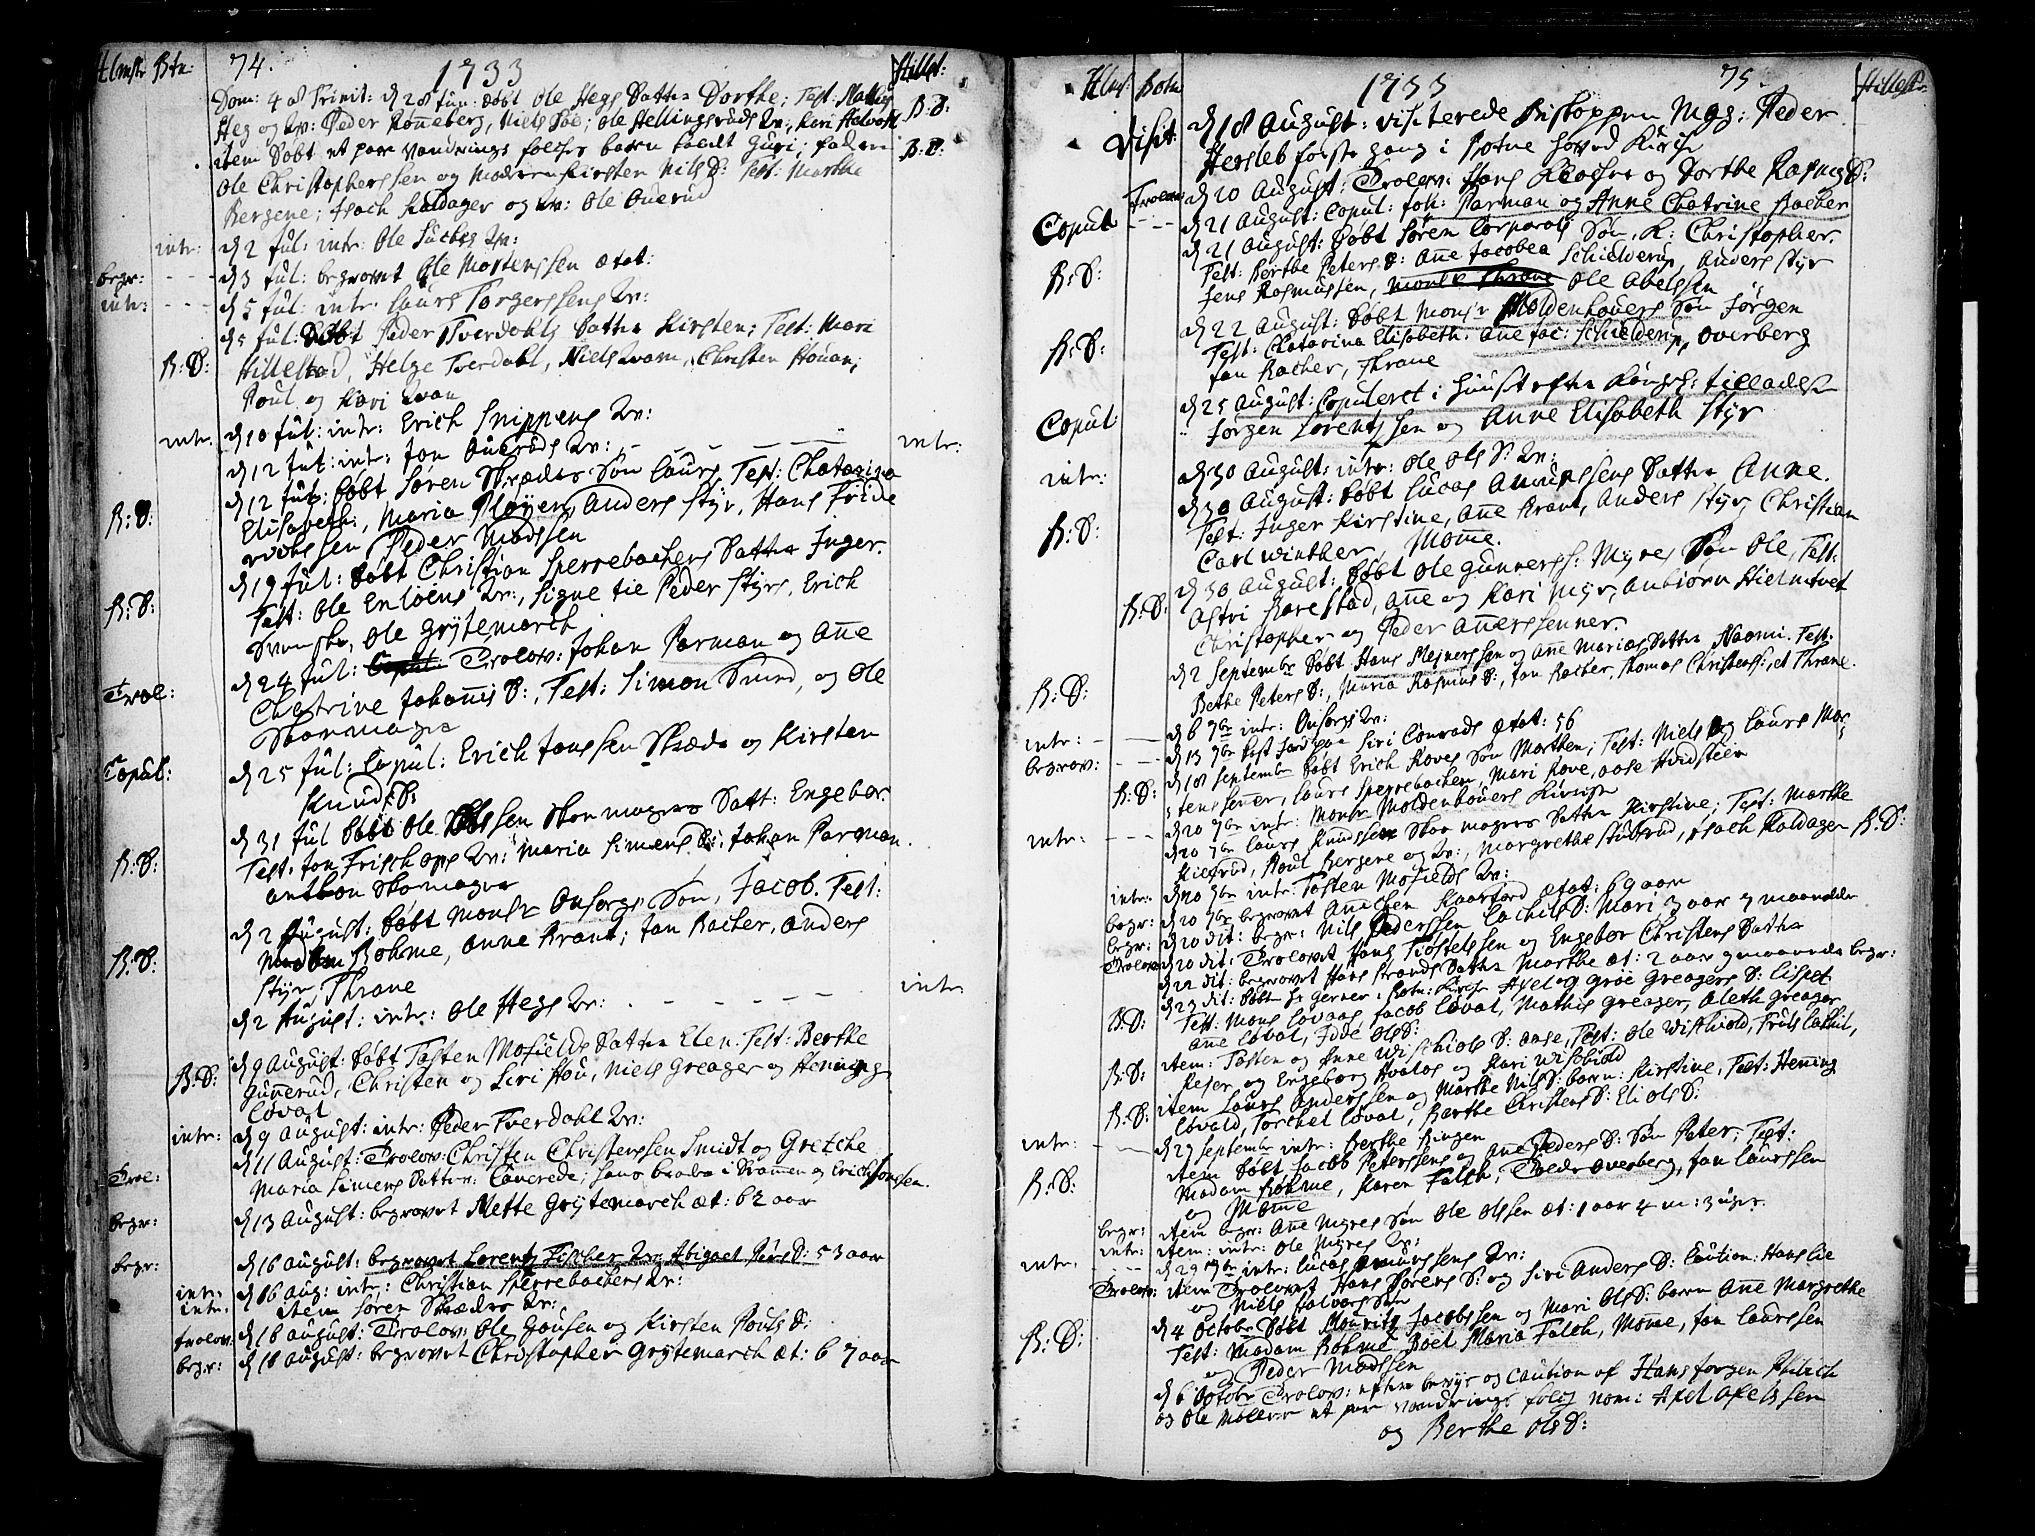 Hlmstr Btn: 74. 1733 Hillest:
Dom: 4 Trinit: d 28 Jun: døbt Ole Hegs Datter Dorthe; Test: Mathis
Heg og Qv: Peder Rønneberg, Niels Søe; Ole Hellingsruds Qv:, Kari B:D:
item døbt et par vandrings folches barn kaldt Guri; faderen B:D:
Ole Christopherssen og Moderen Kirsten Nils D: Test: Marthe
Bergene; Isach Kaldager og Qv: Ole Auerud
intr: d 2 Jul: intr: Ole Qv:
begr: d 3 Jul: begravet Ole Mortenssen ætat:
intr: d 5 Jul: intr: Laurs Torgerssens Qv:
d 5 Jul: Døbt Peder Tverdahls Datter Kirsten; Test: Mari
B:D: Hillestad, Helge Tverdahl, Niels Qvam, Christen Houan,
Poul og Kari Qvan
intr. d 10 Jul: intr: Erich Snippens Qv:
d 12 Jul: intr: Jon Aueruds Qv: intr:
d 12 Jul: døbt Søren Skræders Søn Laurs, Test: Chatarina
B:D: Elisabeth:, Maria Pløyen, Anders Styr, Hans Fride
richssen, Peder Madssen
d 19 Jul: døbt Christian Sperrebachens Datter Inger.
B:D: Test: Ole Enløens Qv:, Signe til Peder Styrs, Erich
Svenske, Ole Grytemarch
d 24 Jul: Trolov: Johan Parman og Anne
Trol: Chatrine Johannis D:, Test: Simon Smed, og Ole
Skoemager
Copul: d 25 Jul: Copul: Erich Jonssen Skræder og Kirsten
Knuds D:
d 31 Jul døbt Ole Olssen Skoemagers Datt: Engebor.
B:D: Test: Jon Frischops Qv: Maria Simens D: Johan Parman.
Anthon Skomager
d 2 August: døbt Monsr Onsorgs Søn, Jacob. Test:
B:D: Madam Bøhme, Anne Krant; Jan Bacher, Anders
Styr Thrane
d 2 August: intr: Ole Hegs Qv: intr:
d 9 August: døbt Tosten Mofields Datter Elen. Test: Berthe
B:D: Gunnerud, Christen og Siri Hou, Niels Greager og Henning
Løvall
intr: d 9 August: intr: Peder Tverdahl Qv:
d 11 August: Trolov: Christen Christenssen Smidt og Gretche
Trol: Maria Simens Datter: Laverede; Hans i Drammen og Erich Jonssen.
begr: d 13 August: begravet Mette Grytemarch æt: 62 aar
begr: d 16 August: begravet Lorentz Fischer Qv: Abigael Pers D: 53 aar
intr: d 16 Aug: intr: Christian Sperrebachens Qv:
intr: item Søren Skræders Qv:
trolov: d 16 August: Trolov: Ole Gousen og Kirsten Pouls D:
begr: d 18 August: begravet Christopher Grytemarch æt: 67 aar
Hlms: Botn 1733 75. Hillest:
Visit: d 18 August: visiterede Biskoppen Mag: Peder
Hersleb første gang i Botne hoved Kirche
Trolov: d 20 August: Trolov: Hans og Dorthe Rasmus D:
Copul d 21 August: Copul: Joh: Parman og Anne Chatrine Bacher
d 21 August: døbt Søren Corporals Søn, K: Christopher.
B:D: Test: Berthe Peters D: Anne Jacobea Schielderup, Anders Styr
Jens Rasmussen, Monsr Thrane Ole Abelssen
d 22 August: døbt Monsr Moldenhouers Søn Jørgen
B:D: Test: Chatarina Elisabeth: Anne Jac: Schielderup, Overberg
Jan Bacher, Thrane
d 25 August: Copuleret i Huuset efter Kongel: tilladelse
Copul Jørgen Lorentzsen og Anne Elisabeth Styr
intr: d 30 August: intr: Ole Ols D: Qv:
d 30 August: døbt Lucas Amunssens Datter Anne.
B:D: Test: Inger Kirstine, Anne Krant, Anders Styr, Christian
Carl Winther, Momme.
d 30 August: døbt Ole Gunnerss: Myres Søn Ole, Test:
B:D: Astri Barestad, Anne og Kari Myr, Anbiørn Hielmtvet
Christopher og Peder Annerssenner.
d 2 Septembr døbt Hans Mejnerssen og Anne Marias Datter Naomi. Test:
B:D: Bethe Peters D:, Maria Rasmus D:, Jan Bacher, Thomas Christenss: et Thrane.
intr: d 6 7br intr: Onsorgs Qv:
begrov: d 13 7br Siri Conrads ætat: 56
d 18 Septembr døbt Erich Roves Søn Morthen; Test: Niels og Laurs Mor
B:D: stenssenner, Laurs Sperrebachen, Mari Rove, Aase Hvidsteen
intr: d 20 7br intr: Monsr Moldenhouers Kieriste
d 20 7br Laurs Knudssen Skoemagers Datter Kirstine; Test: Marthe
Kiesrud, Poul Bergene og Qv:, Margrethe Stubsrud, Isach Kaldager B:D:
intr: d 20 7br intr: Tosten Mofields Qv:
begr: d 20 7br begravet Annichen Kaartord ætat: 69 aar
begr: d 20 dit: begr: Nils Pederssen D: Mari 3 aar 7 maaneder
Trolov d 20 dit: Trolovet Hans Kiøstelssen og Engebor Christens Datter
d 22 dit: begravet Hans Datter Marthe æt: 2 aar 9 maaneder begr:
d 23 dit: døbt Hr Gerner i Botn: Kirche Axel og Groe Greagers D: Lispet
B:D: Test: Mons Løvaas Jacob Løval, Mathis Greager, Aleth Greager
Anne Løval, Idde Ols D:
item: Tosten og Anne Wisthiols D: Aase, Test: Ole Wisthiold,
B:D: Rejer og Engeborg Hvalos og Kari Wisthiold
item Laurs Anderssen og Marthe Nils D: barn: Kirstine, Test: Henning
B:D: Løvald, Torchel Løval, Berthe Christens D: Eli Ols D:
intr: d 29 Septembr intr: Berthe Ringen
item døbt Jacob Peterssens og Anne Peders D: Søn Peter; Test:
B:D: Madam Bøhme, Karen Falch, Peder Overberg, Jan Laurssen
og Momme
begr: item begr: Anne Myres Søn Ole Olssen æt: 1 aar 4 m: 3 uger.
intr: item: intr: Ole Myres Qv:
intr: d 29 7br intr: Lucas Amunssens Qv:
Trolov: item Trolovet Hans Sørens S: og Siri Anders D: Caution: Hans Lie
og Niels Halvorssøn
d 4 Octobr døbt Mouritz Jacobssen og Mari Ols D: barn Anne Margrethe
B:D: Test: Madam Bøhme, Boel Maria Falch, Momme, Jan Laurssen
og Peder Madssen
d 6 Octobr Trolov: efter beviis og Caution af Hans Jørgen
og Ole Møller et par vandrings folch nom: Axel Axelssen
og Berthe Ols D: